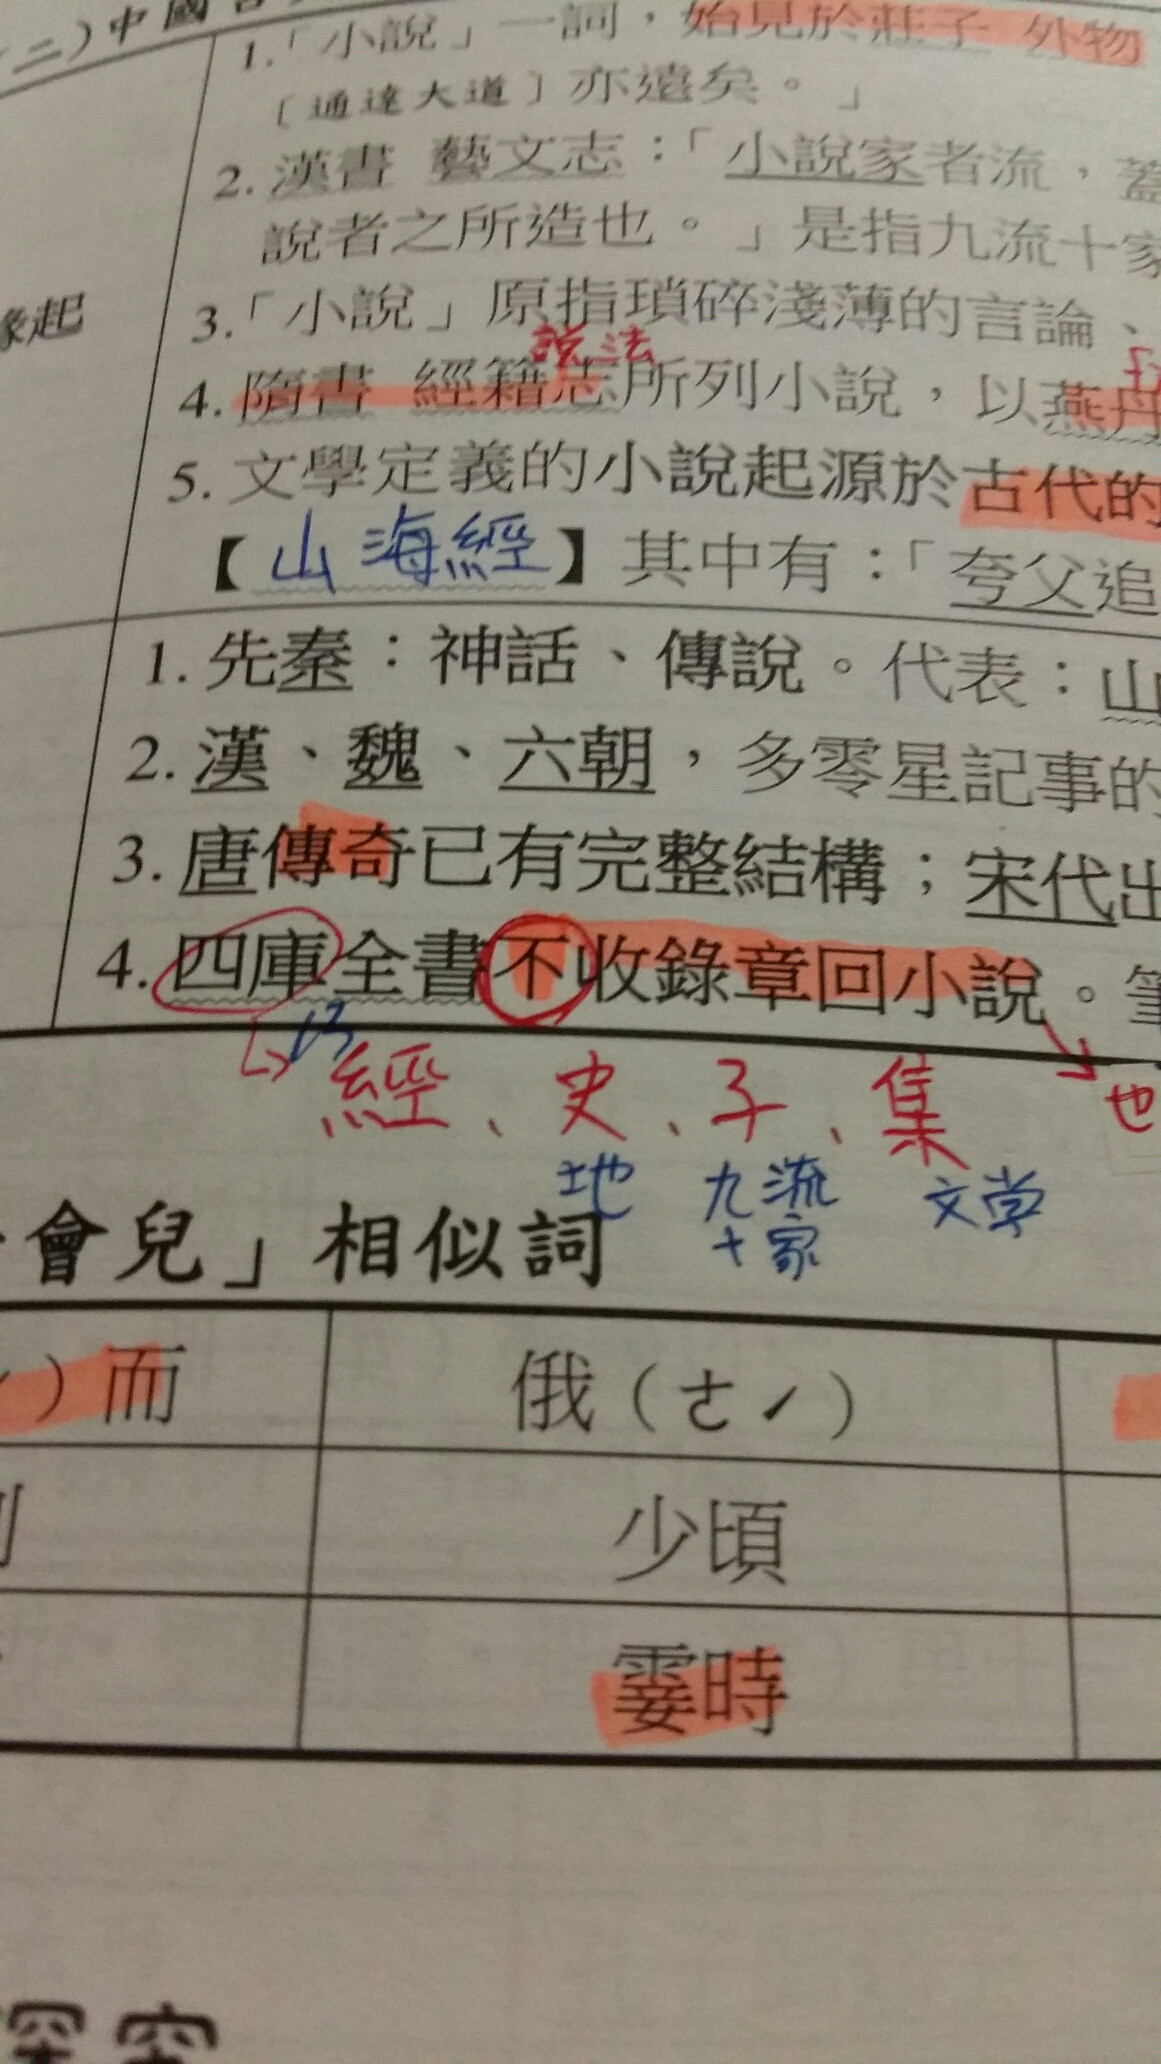 二)中國
1.「小說」一詞，始見於莊子 外物
〔通達大道〕亦遠矣。」
2. 漢書 藝文志：「小說家者流，蓋
說者之所造也。」是指九流十家
緣起
3.「小說」原指瑣碎淺薄的言論、
說法
4. 隋書 經籍志所列小說，以燕丹
5. 文學定義的小說起源於古代的
【山海經】其中有：「夸父追
1. 先秦：神話、傳說。代表：山
2. 漢、魏、六朝，多零星記事的
3. 唐傳奇已有完整結構；宋代出
4. 四庫全書不收錄章回小說。筆
經、史、子、集
也
地 九流十家 文学
會兒」相似詞
）而 俄（ㄜˊ）
少頃
霎時
深究